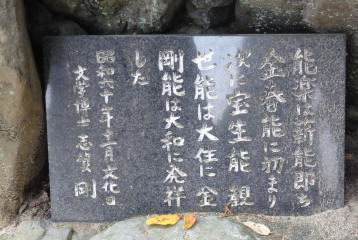 能楽は薪能即ち
金春能に初まり
次に宝生能観
世能は大住に金
剛能は大和に発祥
した
昭和六十年十一月文化の日
文学博士志賀剛